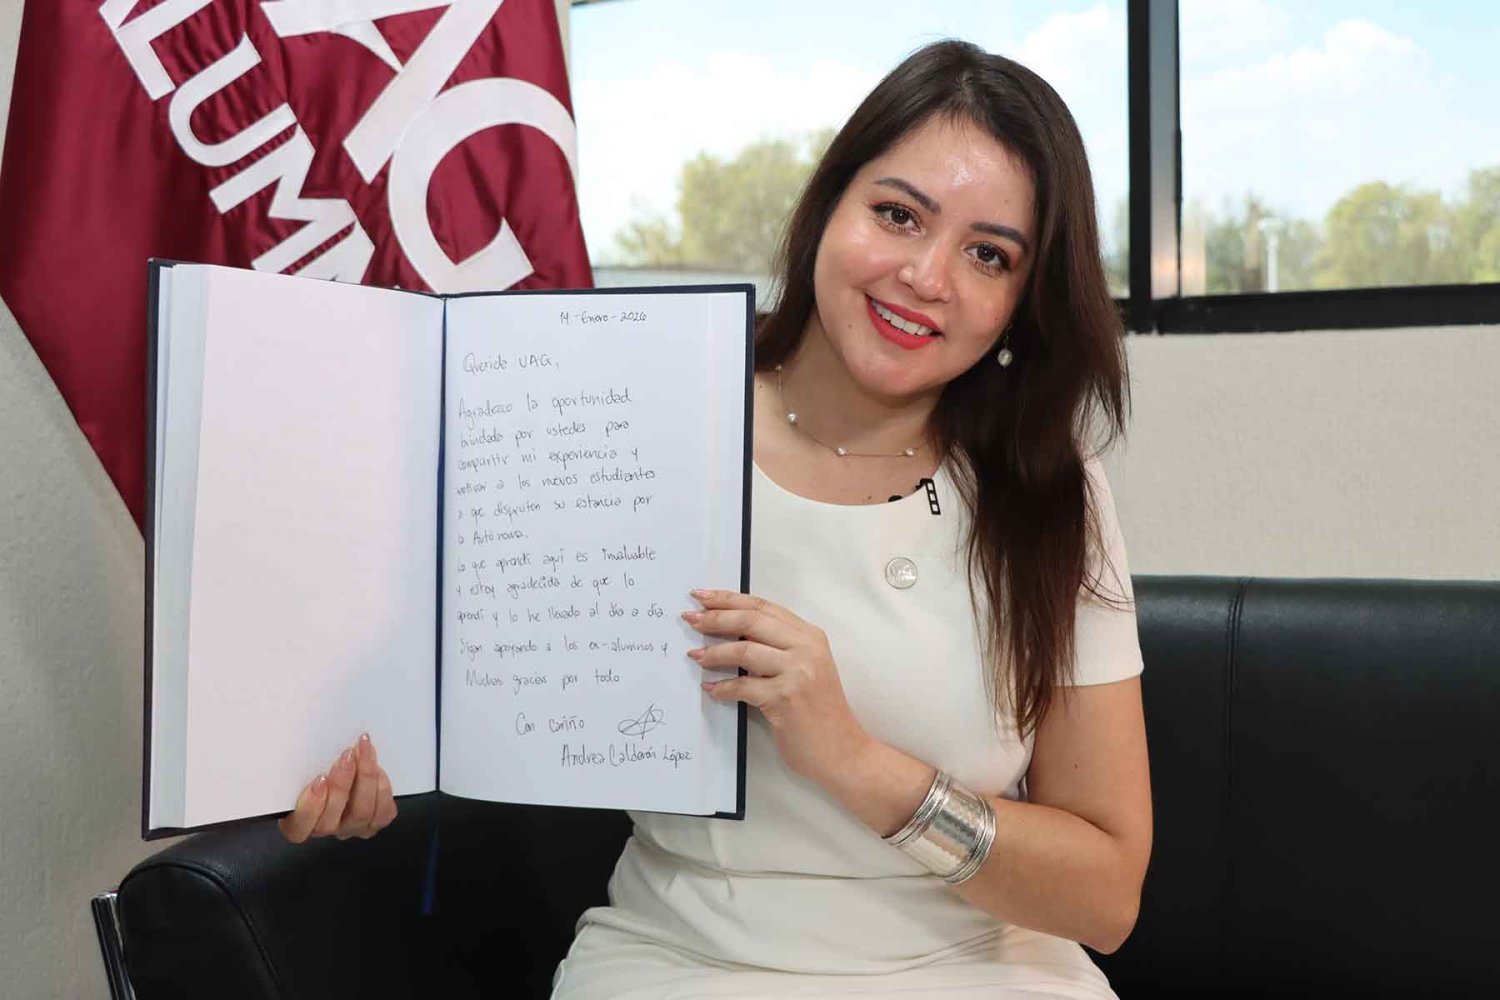 UAG
ALUMNI
14 - Enero - 2026
Querida UAG,
Agradezco la oportunidad
brindada por ustedes para
compartir mi experiencia y
motivar a los nuevos estudiantes
a que disfruten su estancia por
la Autónoma.
Lo que aprendí aquí es invaluable
y estoy agradecida de que lo
aprendí y lo he llevado al día a día.
Sigan apoyando a los ex-alumnos y
Muchas gracias por todo
Con cariño
Andrea Calderón López